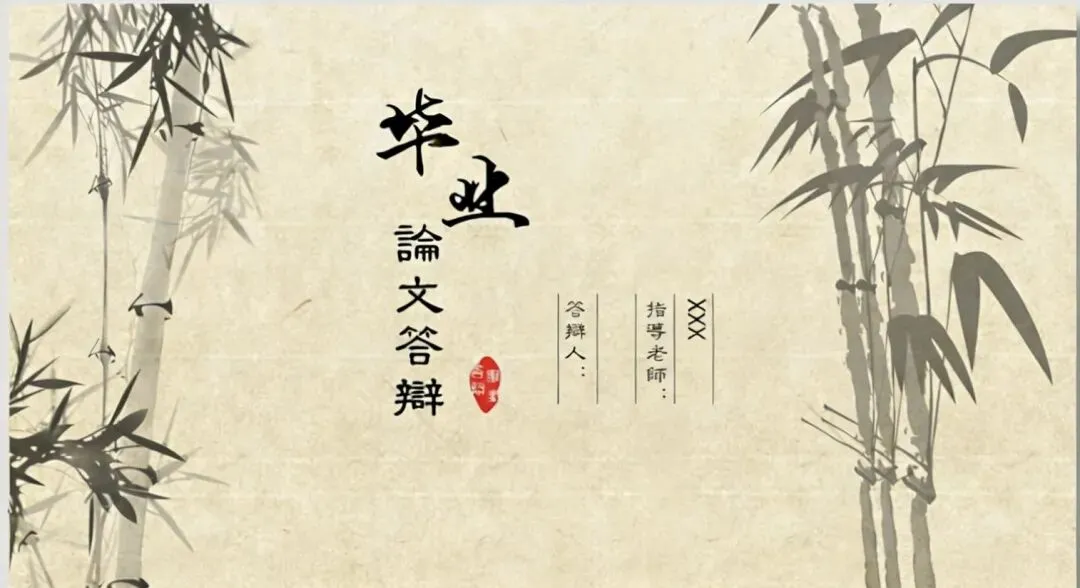 毕业
論文答辯
答辯人：
指導老師：
XXX